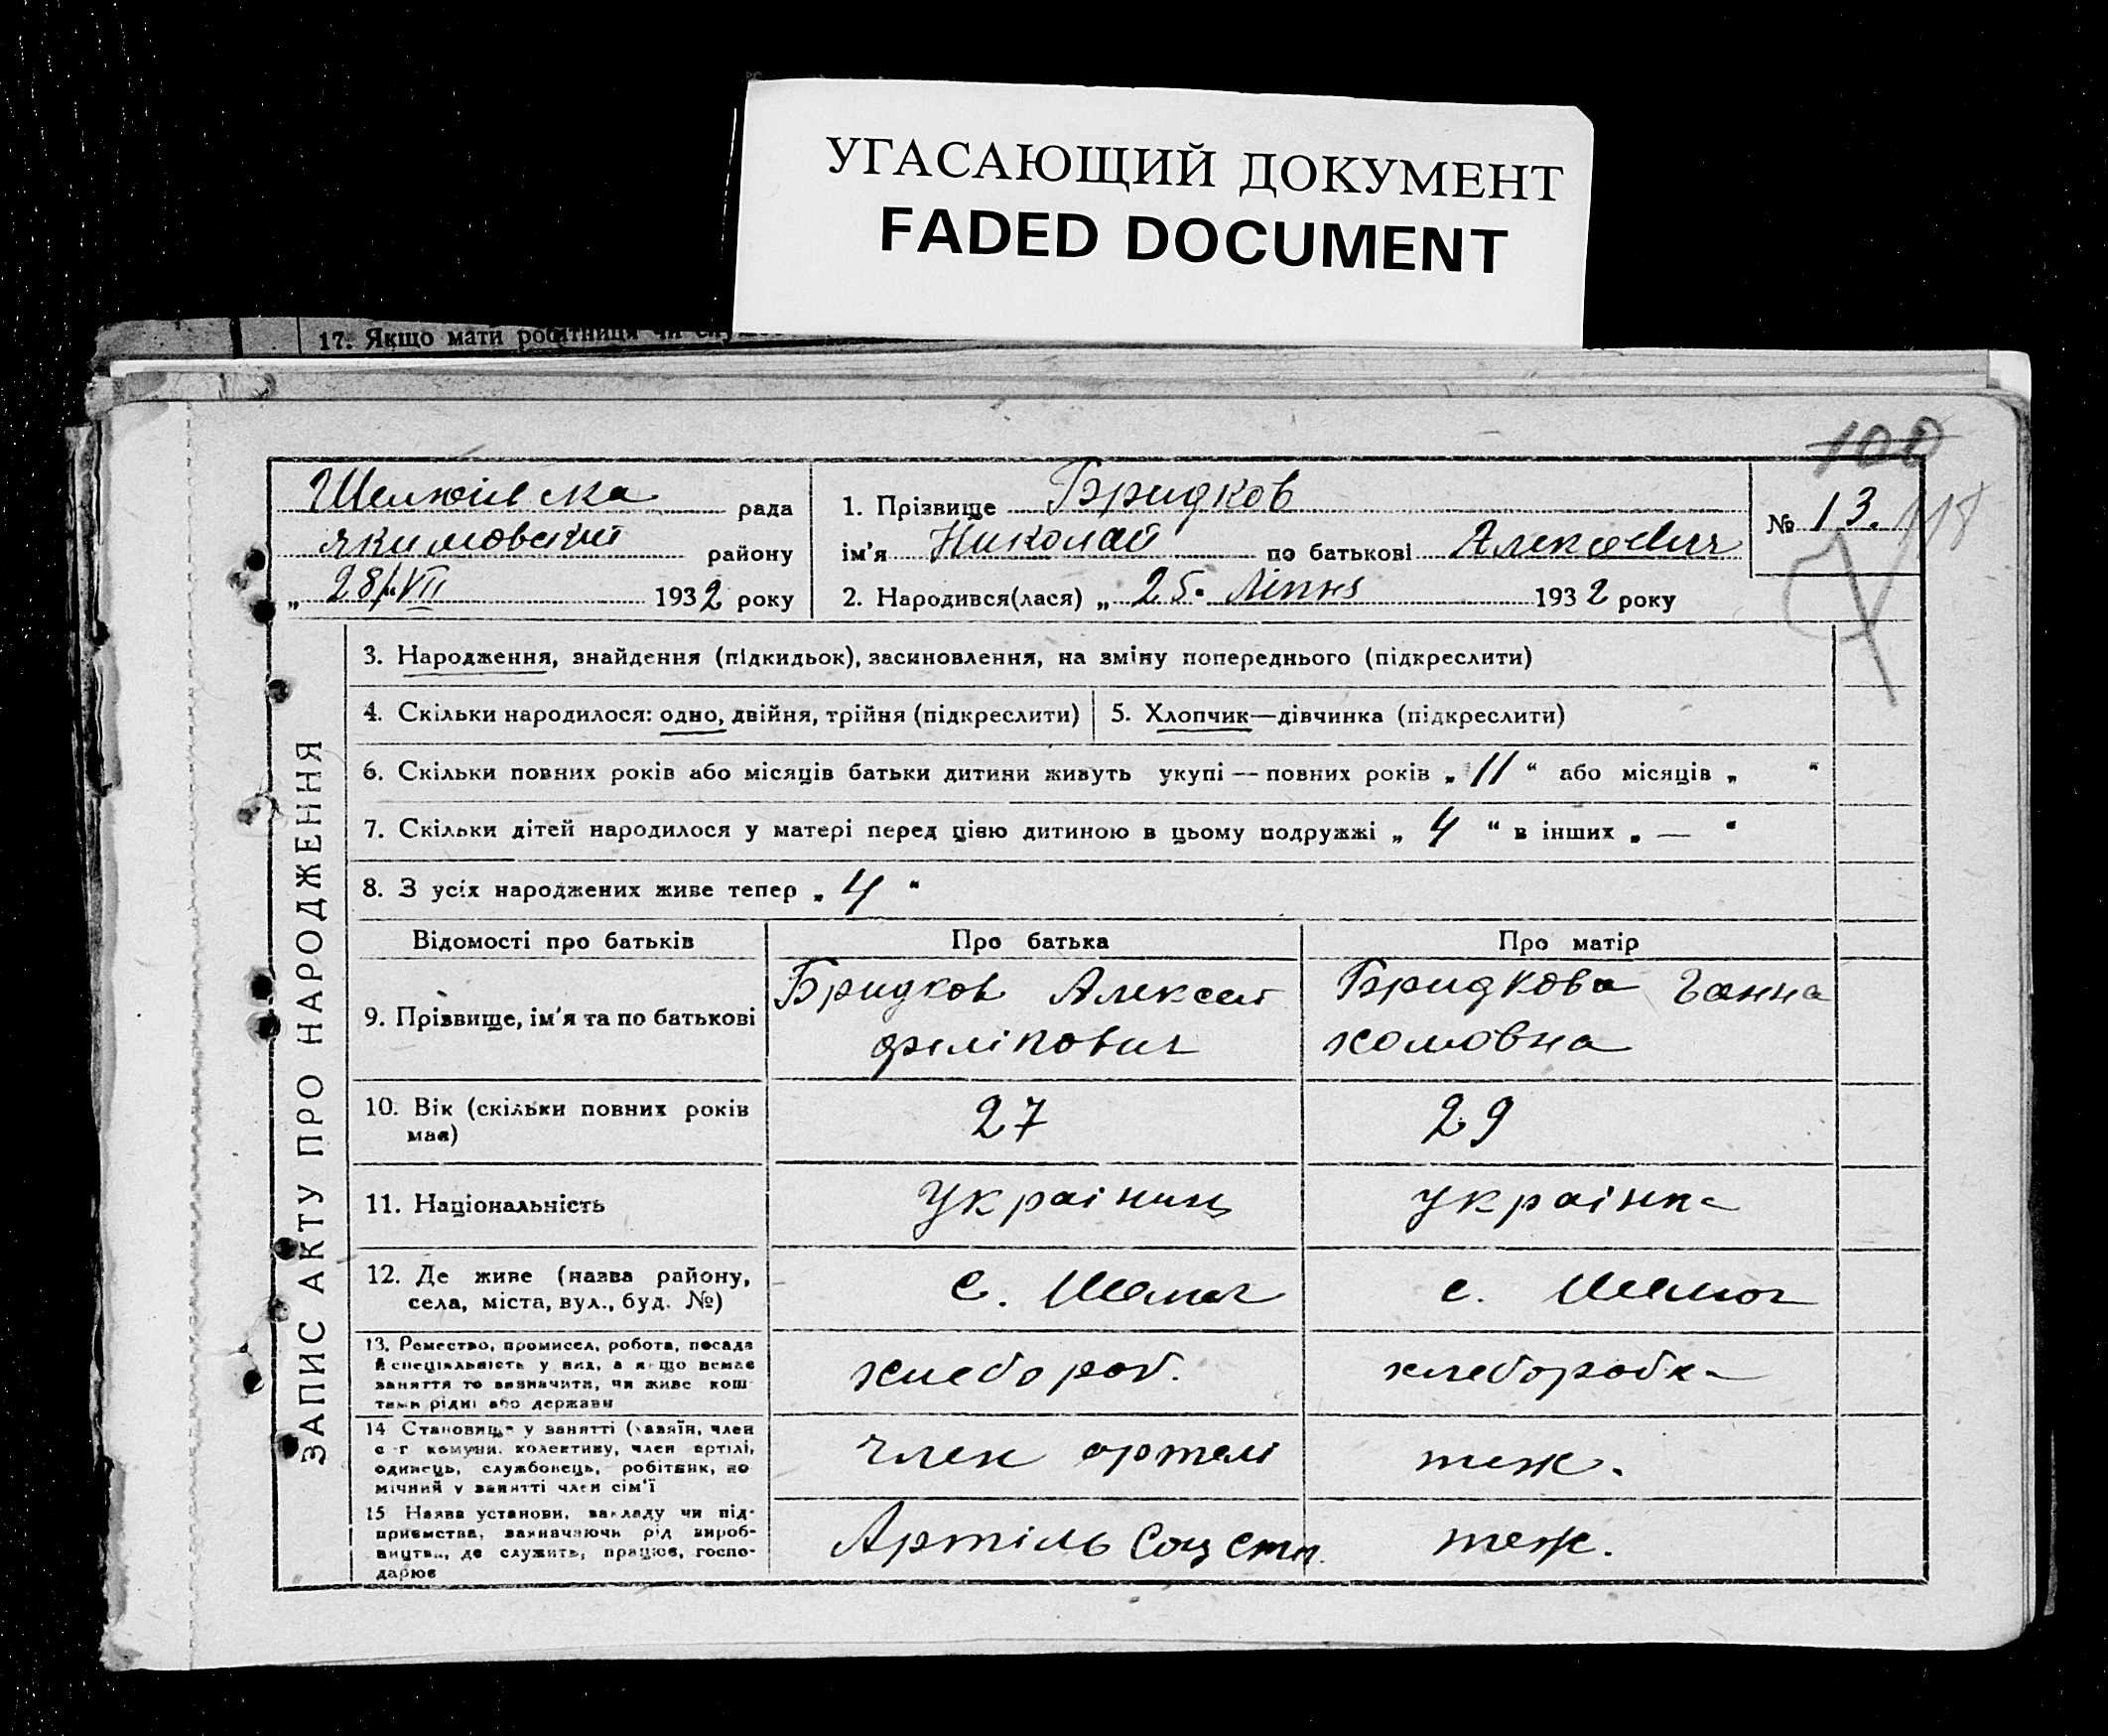 УГАСАЮЩИЙ ДОКУМЕНТ
FADED DOCUMENT
17. Якщо мати робітниця чи
100
118
Шелюгівска рада
якимовский району
„ 28/VII 1932 року
1. Прізвище Бридков
ім'я Николай по батькові Алексеевич
2. Народився(лася) „ 25. Ліпня 1932 року
№ 13.
ЗАПИС АКТУ ПРО НАРОДЖЕННЯ
3. Народження, знайдення (підкидьок), засиновлення, на зміну попереднього (підкреслити)
4. Скільки народилося: одно, двійня, трійня (підкреслити)
5. Хлопчик—дівчинка (підкреслити)
6. Скільки повних років або місяців батьки дитини живуть укупі — повних років „ 11 “ або місяців „ “
7. Скільки дітей народилося у матері перед цією дитиною в цьому подружжі „ 4 “ в інших „ — “
8. З усіх народжених живе тепер „ 4 “
Відомості про батьків
Про батька
Про матір
9. Прізвище, ім'я та по батькові
Бридков Алексей
филіпович
Бридкова Ганна
хомовна
10. Вік (скільки повних років
має)
27
29
11. Національність
Украіниц
украінка
12. Де живе (назва району,
села, міста, вул., буд. №)
с. Шелюг
с. Шелюг
13. Ремество, промисел, робота, посада
й спеціяльність у них, а якщо немає
заняття то зазначити, чи живе кош
тами рідні або держави
хлебороб.
хлеборобка
14 Становище у занятті (хазяїн, член
с-г комуни, колективу, член артілі,
одинець, службовець, робітник, по
мічний у занятті член сім'ї
член артелі
теж.
15 Назва установи, закладу чи під-
приємства, зазначаючи рід вироб-
ництва, де служить, працює, госпо-
дарює
Артіль Соц степ.
теж.